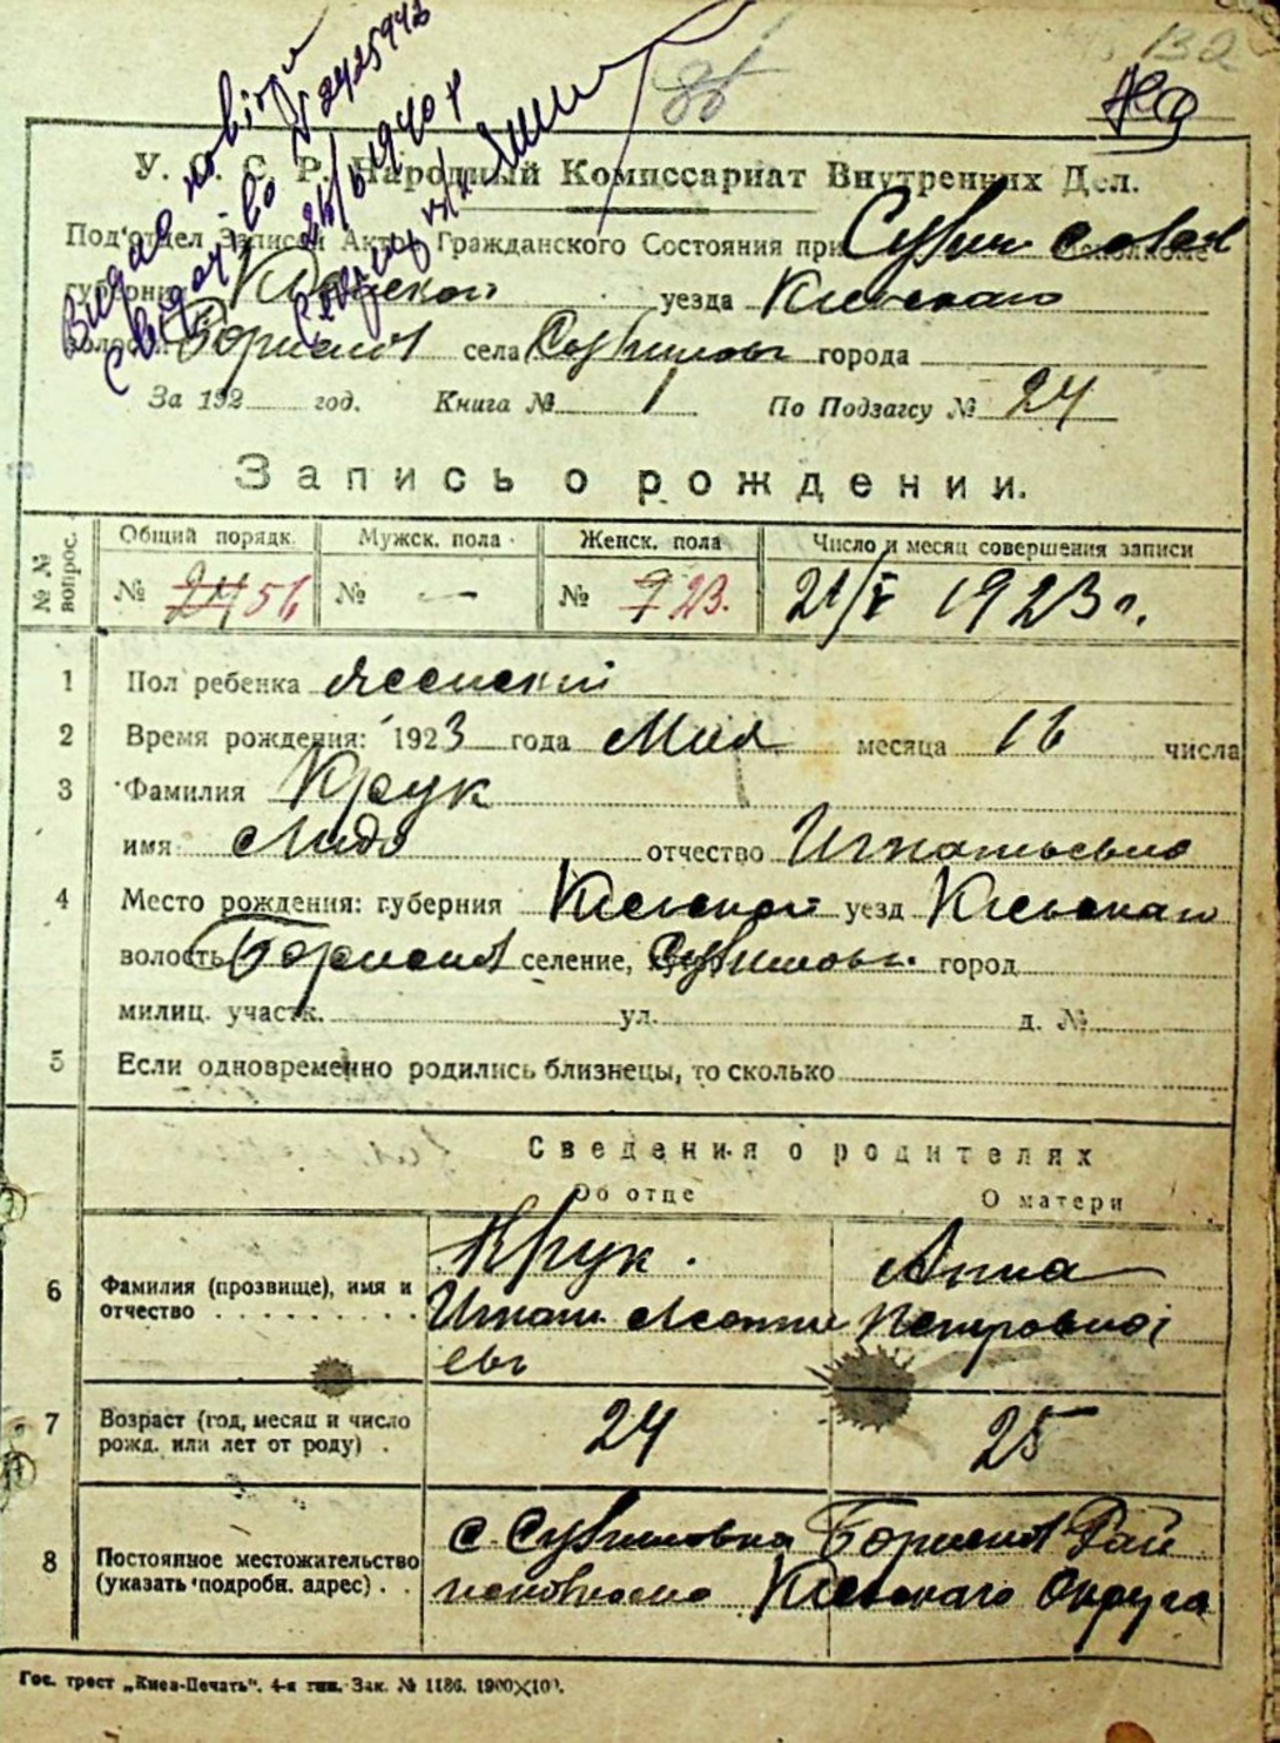 132
86
49
Видано новіше
свідоцтво № 2425942
26/6 1940 р
У. С. С. Р. Народный Комиссариат Внутренних Дел.
Под'отдел Записи Актов Гражданского Состояния при
губернии Киевской уезда Киевского
волость села города
За 192 год. Книга № 1 По Подзагсу № 24
Запись о рождении.
№№ вопрос. Общий порядк. Мужск. пола Женск. пола Число и месяц совершения записи
№ 24 56 № — № 7 23. 21/V 1923 г.
1 Пол ребенка женский
2 Время рождения: 1923 года Мая месяца 16 числа
3 Фамилия Крук
имя Лида отчество Игнатьевна
4 Место рождения: губерния Киевской уезд Киевского
волость селение, город
милиц. участк. ул. д. №
5 Если одновременно родились близнецы, то сколько
Сведения о родителях
Об отце О матери
6 Фамилия (прозвище), имя и отчество Крук. Анна
Игнат Петровна
евич
7 Возраст (год, месяц и число рожд. или лет от роду) . 24 25
8 Постоянное местожительство (указать подробн. адрес) . . с. Рай
Киевского Округа
Гос. трест „Киев-Печать". 4-я тип. Зак. № 1186. 1900×10).